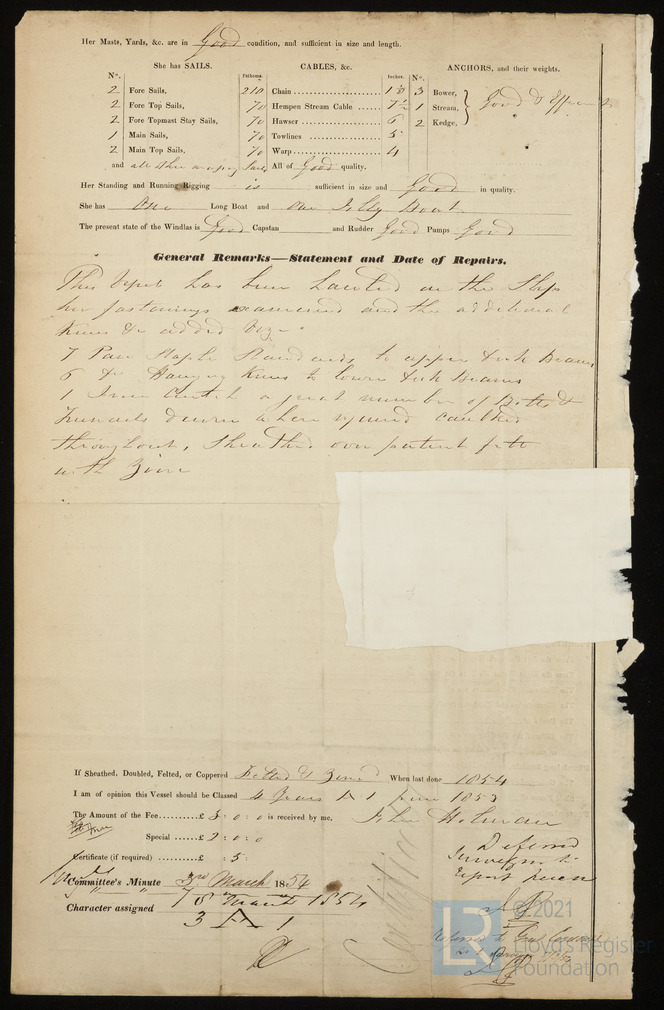 Her Masts, Yards, &c. are in Good condition, and sufficient in size and length.
She has SAILS. CABLES, &c. ANCHORS, and their weights.
No. Fathoms. Inches. No.
2 Fore Sails, 210 Chain 1 3 Bower, Good &
2 Fore Top Sails, 70 Hempen Stream Cable 7½ 1 Stream,
2 Fore Topmast Stay Sails, 70 Hawser 6 2 Kedge,
1 Main Sails, 70 Towlines 5
2 Main Top Sails, 70 Warp 4
and all other Sails All of Good quality.
Her Standing and Running Rigging is sufficient in size and Good in quality.
She has One Long Boat and One Jolly Boat
The present state of the Windlas is Good Capstan and Rudder Good Pumps Good
General Remarks—Statement and Date of Repairs.
This has been hauled on the Slip
her fastenings examined and the additional
Knees &c added Viz
7 Pair Staple Standards to upper deck Beams
6 Do Hanging Knees to lower deck Beams
1 Iron Crutch a great number of Bolts &
Treenails driven where required caulked
throughout, Sheathed over patent felt
with Zinc
If Sheathed, Doubled, Felted, or Coppered Felted & Zinced When last done 1854
I am of opinion this Vessel should be Classed 4 Years A 1 from 1853
The Amount of the Fee £ 5 : 0 : 0 is received by me. John Holman
Special £ 2 : 0 : 0
Certificate (if required) £ : 5 :
Deferred
Surveyor to
report
Committee's Minute 3rd March 1854
7th March 1854
Character assigned
3 A 1
Referred to
© 2021
LR
Lloyd's Register
Foundation